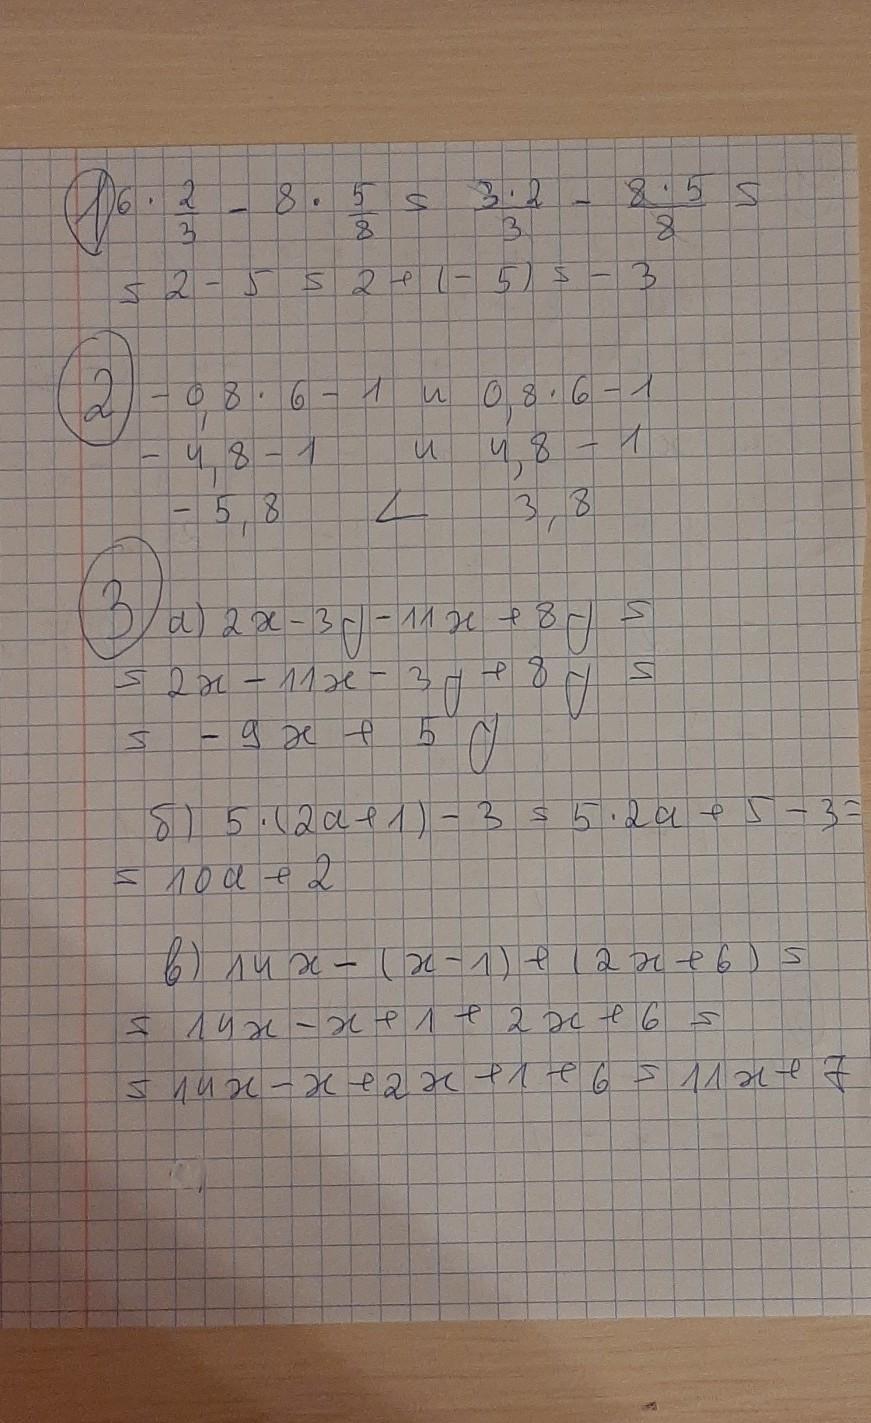 ① 6 · 2/3 - 8 · 5/8 = 3·2/3 - 8·5/8 =
= 2 - 5 = 2 + (-5) = -3
② -0,8 · 6 - 1 и 0,8 · 6 - 1
-4,8 - 1 и 4,8 - 1
-5,8 < 3,8
③ а) 2x - 3y - 11x + 8y =
= 2x - 11x - 3y + 8y =
= -9x + 5y
б) 5 · (2a + 1) - 3 = 5 · 2a + 5 - 3 =
= 10a + 2
в) 14x - (x - 1) + (2x + 6) =
= 14x - x + 1 + 2x + 6 =
= 14x - x + 2x + 1 + 6 = 11x + 7